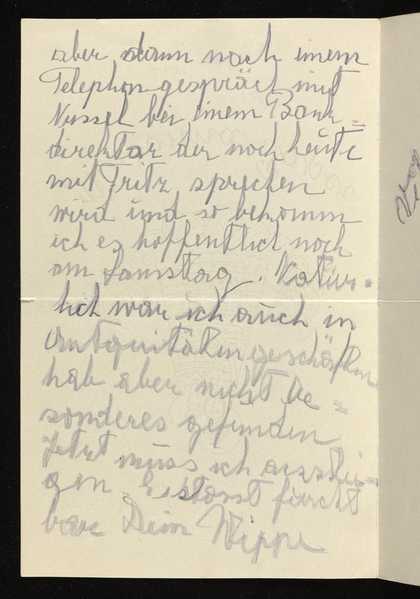 aber dann nach einem
Telephongespräch mit
Nussel bei einem Bank=
direktor der noch heute
mit Fritz sprechen
wird und so bekomm
ich es hoffentlich noch
am Samstag. Natür=
lich war ich auch in
Antquitätengeschäften
hab aber nicht be=
sonderes gefunden
Jetzt muss ich ausstei=
gen. Es stosst furcht
bar Dein Wippe